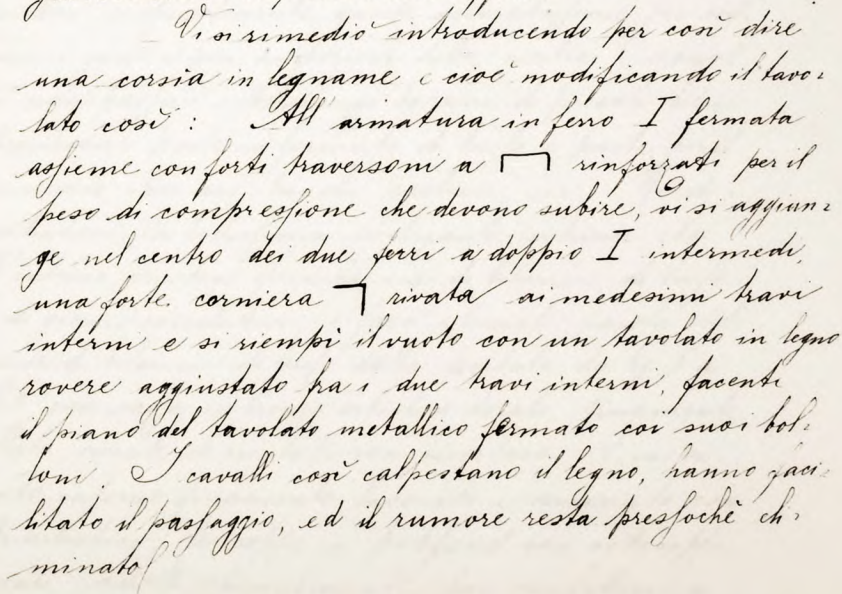 Vi si rimediò introducendo per così dire
una corsìa in legname e cioè modificando il tavo-
lato così : All' armatura in ferro I fermata
assieme con forti traversoni a ⊓ rinforzati per il
peso di compressione che devono subire, vi si aggiun-
ge nel centro dei due ferri a doppio I intermedi,
una forte corniera ㄱ rivata ai medesimi travi
interni e si riempì il vuoto con un tavolato in legno
rovere aggiustato fra i due travi interni, facenti
il piano del tavolato metallico fermato coi suoi bol-
loni. I cavalli così calpestano il legno, hanno faci-
litato il passaggio, ed il rumore resta pressochè eli-
minato